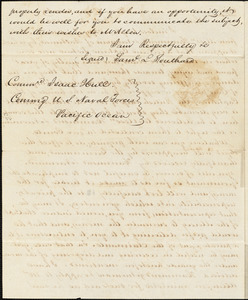 properly render, and if you have an opportunity, it
would be well for you to communicate the subject,
with their wishes to Mr Allen.
Very Respectfully &c
signed Saml L Southard
Commre Isaac Hull
Commg U S Naval Forces
Pacific Ocean